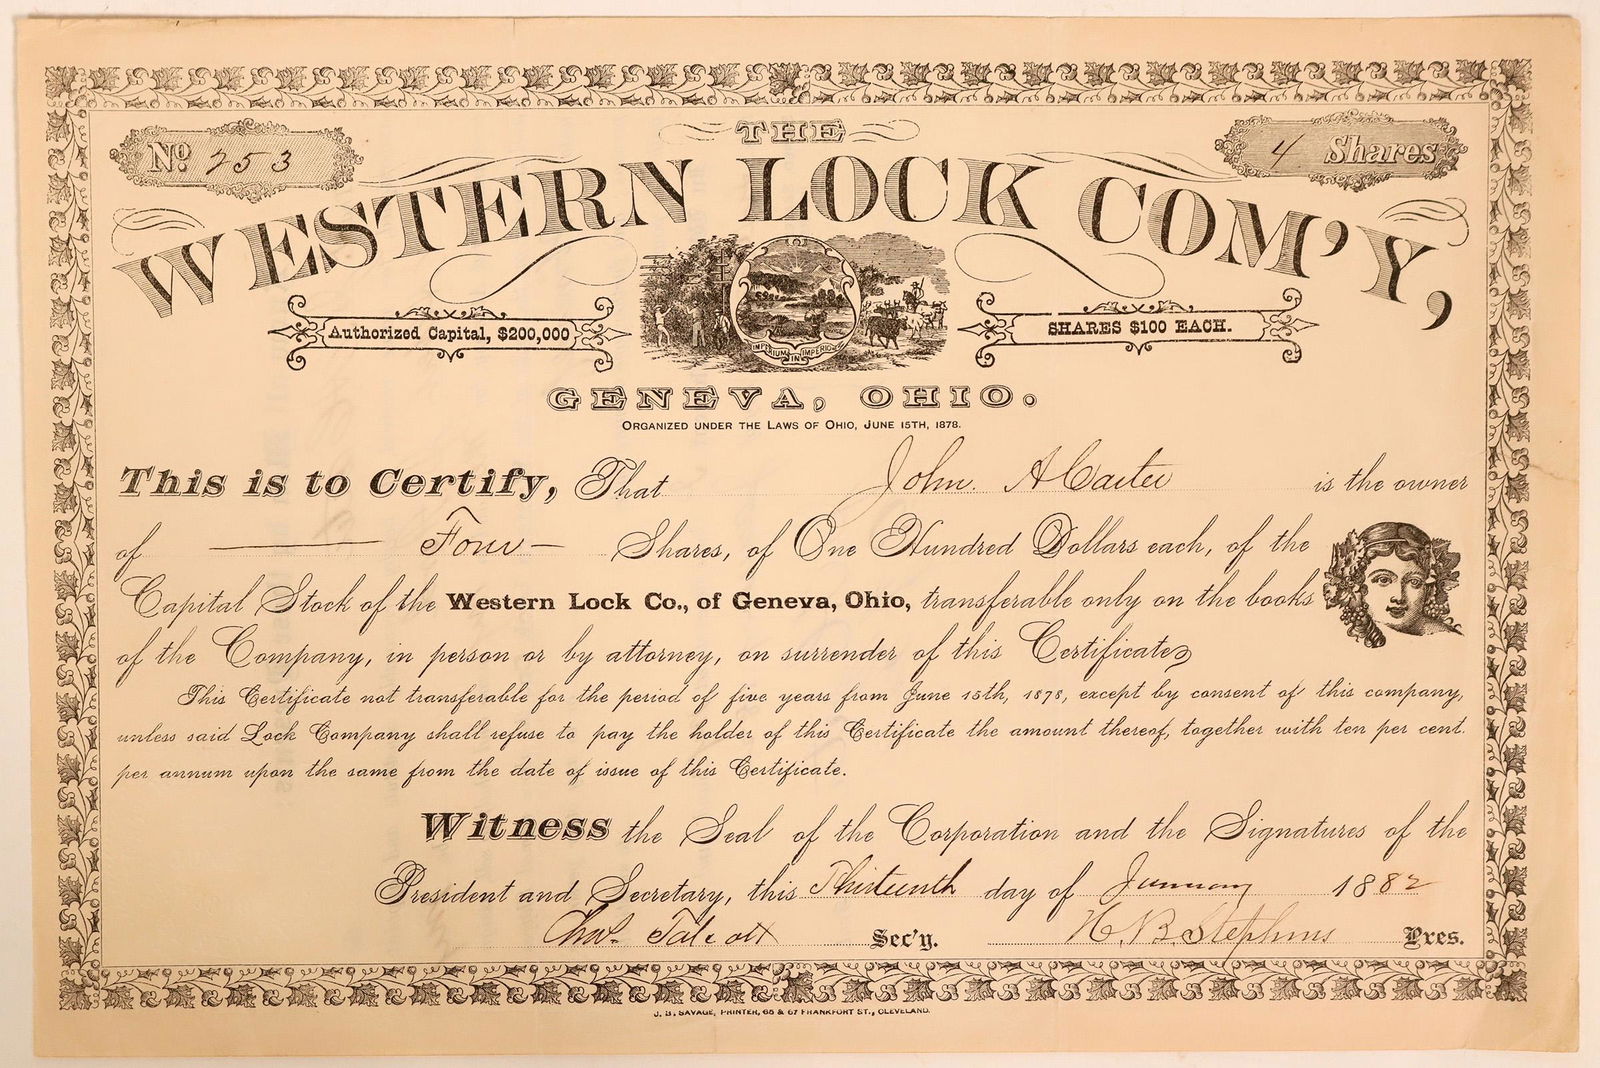 No. 253
4 Shares
THE
WESTERN LOCK COM'Y,
Authorized Capital, $200,000
SHARES $100 EACH.
IMPERIUM IN IMPERIO
GENEVA, OHIO.
ORGANIZED UNDER THE LAWS OF OHIO, JUNE 15TH, 1878.
This is to Certify, That John A Carter is the owner
of Four Shares, of One Hundred Dollars each, of the
Capital Stock of the Western Lock Co., of Geneva, Ohio, transferable only on the books
of the Company, in person or by attorney, on surrender of this Certificate
This Certificate not transferable for the period of five years from June 15th, 1878, except by consent of this company,
unless said Lock Company shall refuse to pay the holder of this Certificate the amount thereof, together with ten per cent.
per annum upon the same from the date of issue of this Certificate.
Witness the Seal of the Corporation and the Signatures of the
President and Secretary, this Thirteenth day of January 1882
Chas. Talcott Sec'y. H B Stephens Pres.
J. B. SAVAGE, PRINTER, 65 & 67 FRANKFORT ST., CLEVELAND.